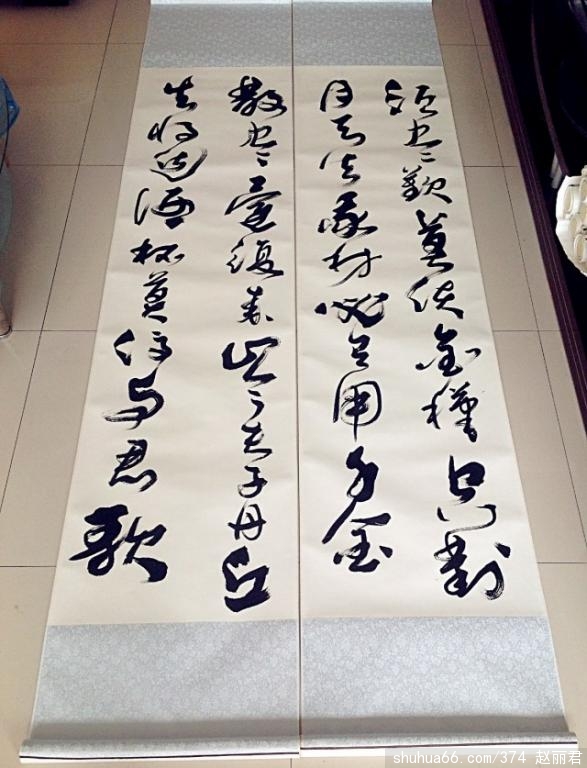 須盡歡莫使金樽空對
月天生我材必有用千金
散盡還復來岑夫子丹丘
生將進酒杯莫停與君歌
shuhua66.com/374 赵丽君